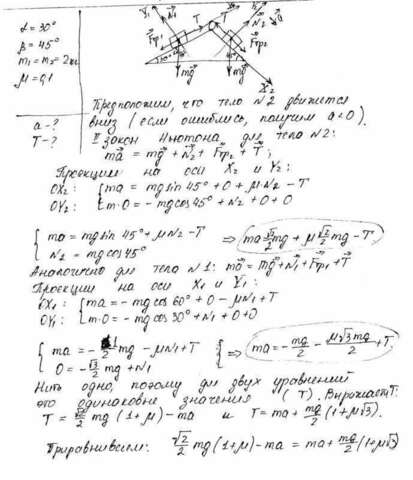 α = 30°
β = 45°
m₁ = m₂ = 2кг
μ = 0,1
a - ?
T - ?
Y₁ N₁ T T Y₂ N₂ a
Fтр₁ Fтр₂
30° 45°
mg mg
X₂
Предположим, что тело N2 движется
вниз (если ошиблись, получим a<0).
II закон Ньютона для тела N2:
ma = mg + N₂ + Fтр₂ + T;
Проекции на оси X₂ и Y₂:
OX₂: { ma = mg sin 45° + 0 + μN₂ - T
OY₂: { m·0 = - mg cos 45° + N₂ + 0 + 0
{ ma = mg sin 45° + μN₂ - T ⇒ ma = √2/2 mg + μ √2/2 mg - T
N₂ = mg cos 45°
Аналогично для тела N1: ma = mg + N₁ + Fтр₁ + T
Проекции на оси X₁ и Y₁:
OX₁: { ma = - mg cos 60° + 0 - μN₁ + T
OY₁: { m·0 = - mg cos 30° + N₁ + 0 + 0
{ ma = - 1/2 mg - μN₁ + T ⇒ ma = - mg/2 - μ√3mg/2 + T
0 = - √3/2 mg + N₁
Нить одна, поэтому для двух уравнений
это одинаковые значения (T). Выражаем T:
T = √2/2 mg (1 + μ) - ma и T = ma + mg/2 (1 + μ√3).
Приравниваем: √2/2 mg (1 + μ) - ma = ma + mg/2 (1 + μ√3)